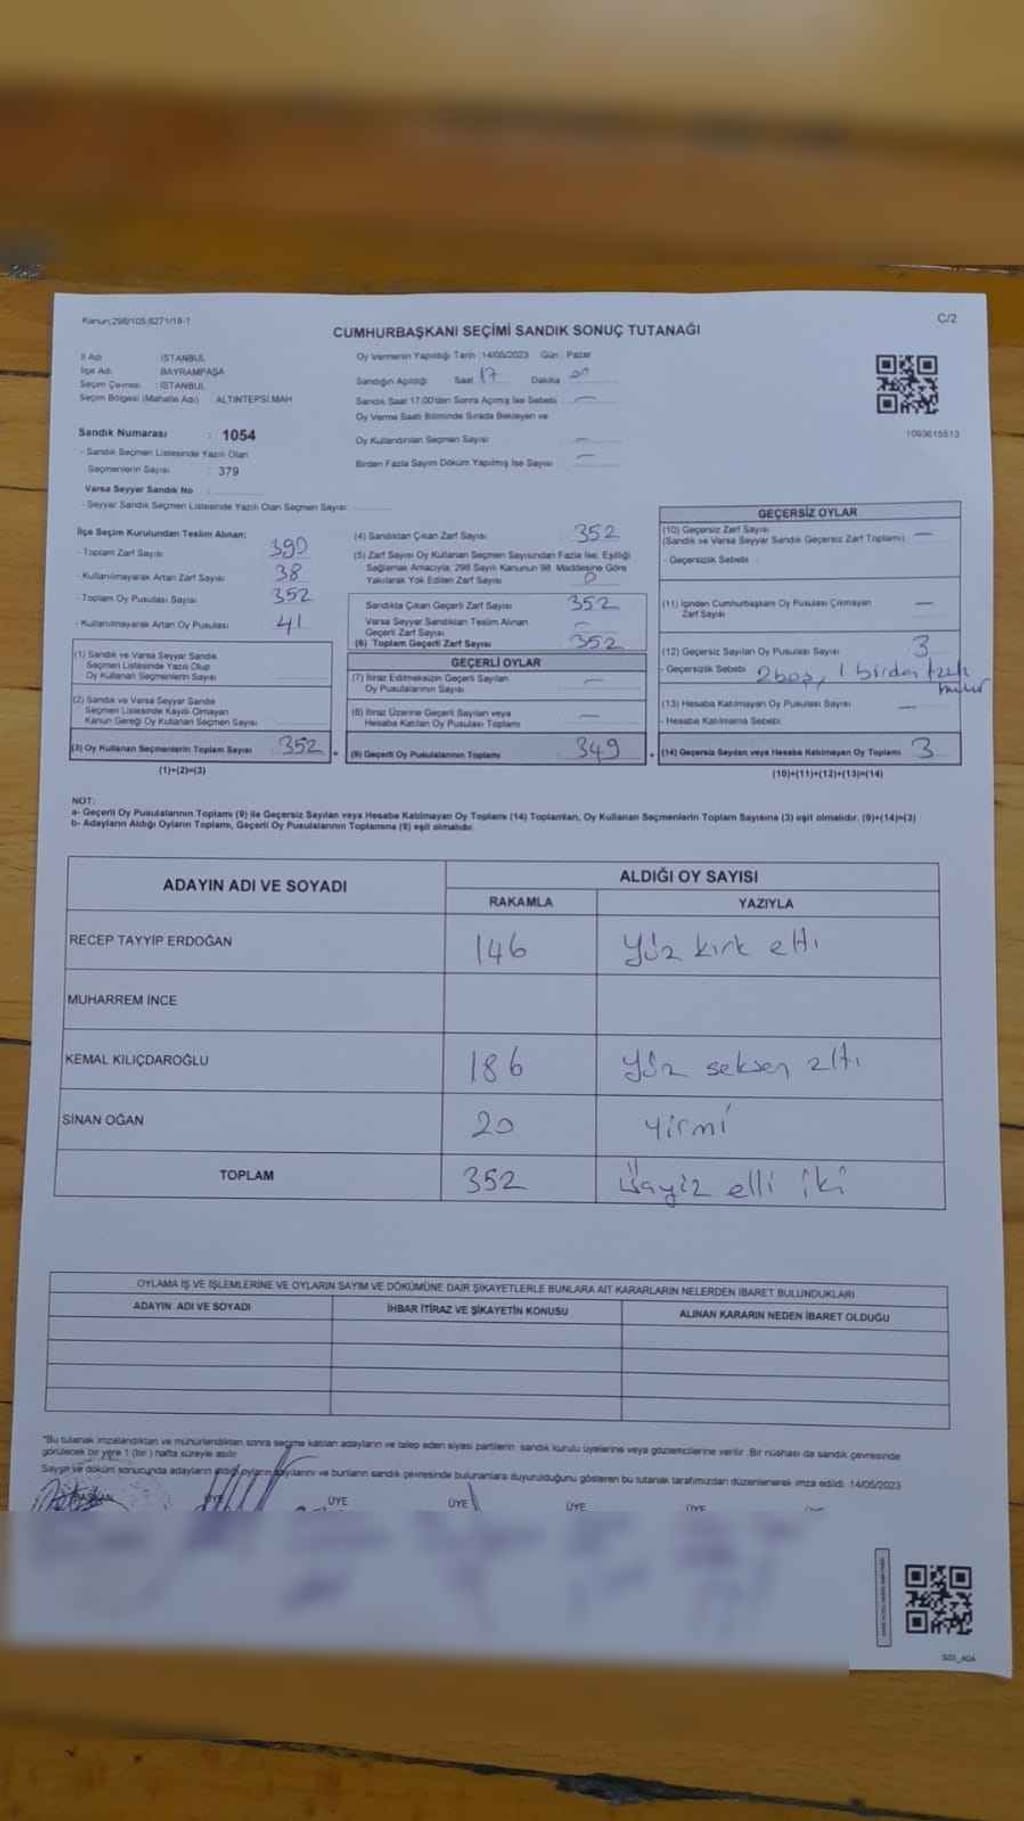 Kanun:298/105,6271/18-1
C/2
CUMHURBAŞKANI SEÇİMİ SANDIK SONUÇ TUTANAĞI
İl Adı : İSTANBUL
İlçe Adı : BAYRAMPAŞA
Seçim Çevresi : İSTANBUL
Seçim Bölgesi (Mahalle Adı) : ALTINTEPSİ MAH
Sandık Numarası : 1054
- Sandık Seçmen Listesinde Yazılı Olan
Seçmenlerin Sayısı : 379
Varsa Seyyar Sandık No
- Seyyar Sandık Seçmen Listesinde Yazılı Olan Seçmen Sayısı
Oy Vermenin Yapıldığı Tarih : 14/05/2023 Gün : Pazar
Sandığın Açıldığı Saat 17 Dakika
Sandık Saat 17.00'den Sonra Açılmış İse Sebebi
Oy Verme Saati Bitiminde Sırada Bekleyen ve
Oy Kullandırılan Seçmen Sayısı
Birden Fazla Sayım Döküm Yapılmış İse Sayısı
1093615513
İlçe Seçim Kurulundan Teslim Alınan:
- Toplam Zarf Sayısı 390
- Kullanılmayarak Artan Zarf Sayısı 38
- Toplam Oy Pusulası Sayısı 352
- Kullanılmayarak Artan Oy Pusulası 41
(1) Sandık ve Varsa Seyyar Sandık
Seçmen Listesinde Yazılı Olup
Oy Kullanan Seçmenlerin Sayısı
(2) Sandık ve Varsa Seyyar Sandık
Seçmen Listesinde Kayıtlı Olmayan
Kanun Gereği Oy Kullanan Seçmen Sayısı
(3) Oy Kullanan Seçmenlerin Toplam Sayısı 352
(1)+(2)=(3)
(4) Sandıktan Çıkan Zarf Sayısı 352
(5) Zarf Sayısı Oy Kullanan Seçmen Sayısından Fazla İse, Eşitliği
Sağlamak Amacıyla, 298 Sayılı Kanunun 98. Maddesine Göre
Yakılarak Yok Edilen Zarf Sayısı 0
Sandıkta Çıkan Geçerli Zarf Sayısı 352
Varsa Seyyar Sandıktan Teslim Alınan
Geçerli Zarf Sayısı
(6) Toplam Geçerli Zarf Sayısı 352
GEÇERLİ OYLAR
(7) İtiraz Edilmeksizin Geçerli Sayılan
Oy Pusulalarının Sayısı
(8) İtiraz Üzerine Geçerli Sayılan veya
Hesaba Katılan Oy Pusulası Toplamı
(9) Geçerli Oy Pusulalarının Toplamı 349
GEÇERSİZ OYLAR
(10) Geçersiz Zarf Sayısı
(Sandık ve Varsa Seyyar Sandık Geçersiz Zarf Toplamı)
- Geçersizlik Sebebi
(11) İçinden Cumhurbaşkanı Oy Pusulası Çıkmayan
Zarf Sayısı
(12) Geçersiz Sayılan Oy Pusulası Sayısı 3
- Geçersizlik Sebebi 2 boş, 1 birden fazla
mühür
(13) Hesaba Katılmayan Oy Pusulası Sayısı
- Hesaba Katılmama Sebebi
(14) Geçersiz Sayılan veya Hesaba Katılmayan Oy Toplamı 3
(10)+(11)+(12)+(13)=(14)
NOT:
a- Geçerli Oy Pusulalarının Toplamı (9) ile Geçersiz Sayılan veya Hesaba Katılmayan Oy Toplamı (14) Toplamları, Oy Kullanan Seçmenlerin Toplam Sayısına (3) eşit olmalıdır. (9)+(14)=(3)
b- Adayların Aldığı Oyların Toplamı, Geçerli Oy Pusulalarının Toplamına (9) eşit olmalıdır.
ADAYIN ADI VE SOYADI
ALDIĞI OY SAYISI
RAKAMLA YAZIYLA
RECEP TAYYİP ERDOĞAN 146 Yüz kırk altı
MUHARREM İNCE
KEMAL KILIÇDAROĞLU 186 Yüz seksen altı
SİNAN OĞAN 20 yirmi
TOPLAM 352 üçyüz elli iki
OYLAMA İŞ VE İŞLEMLERİNE VE OYLARIN SAYIM VE DÖKÜMÜNE DAİR ŞİKAYETLERLE BUNLARA AİT KARARLARIN NELERDEN İBARET BULUNDUKLARI
ADAYIN ADI VE SOYADI İHBAR İTİRAZ VE ŞİKAYETİN KONUSU ALINAN KARARIN NEDEN İBARET OLDUĞU
*Bu tutanak imzalandıktan ve mühürlendikten sonra seçime katılan adayların ve talep eden siyasi partilerin sandık kurulu üyelerine veya gözlemcilerine verilir. Bir nüshası da sandık çevresinde
görülecek bir yere 1 (bir) hafta süreyle asılır.
Sayım ve döküm sonucunda adayların aldığı oyların sayılarını ve bunların sandık çevresinde bulunanlara duyurulduğunu gösteren bu tutanak tarafımızdan düzenlenerek imza edildi. 14/05/2023
ÜYE ÜYE ÜYE ÜYE